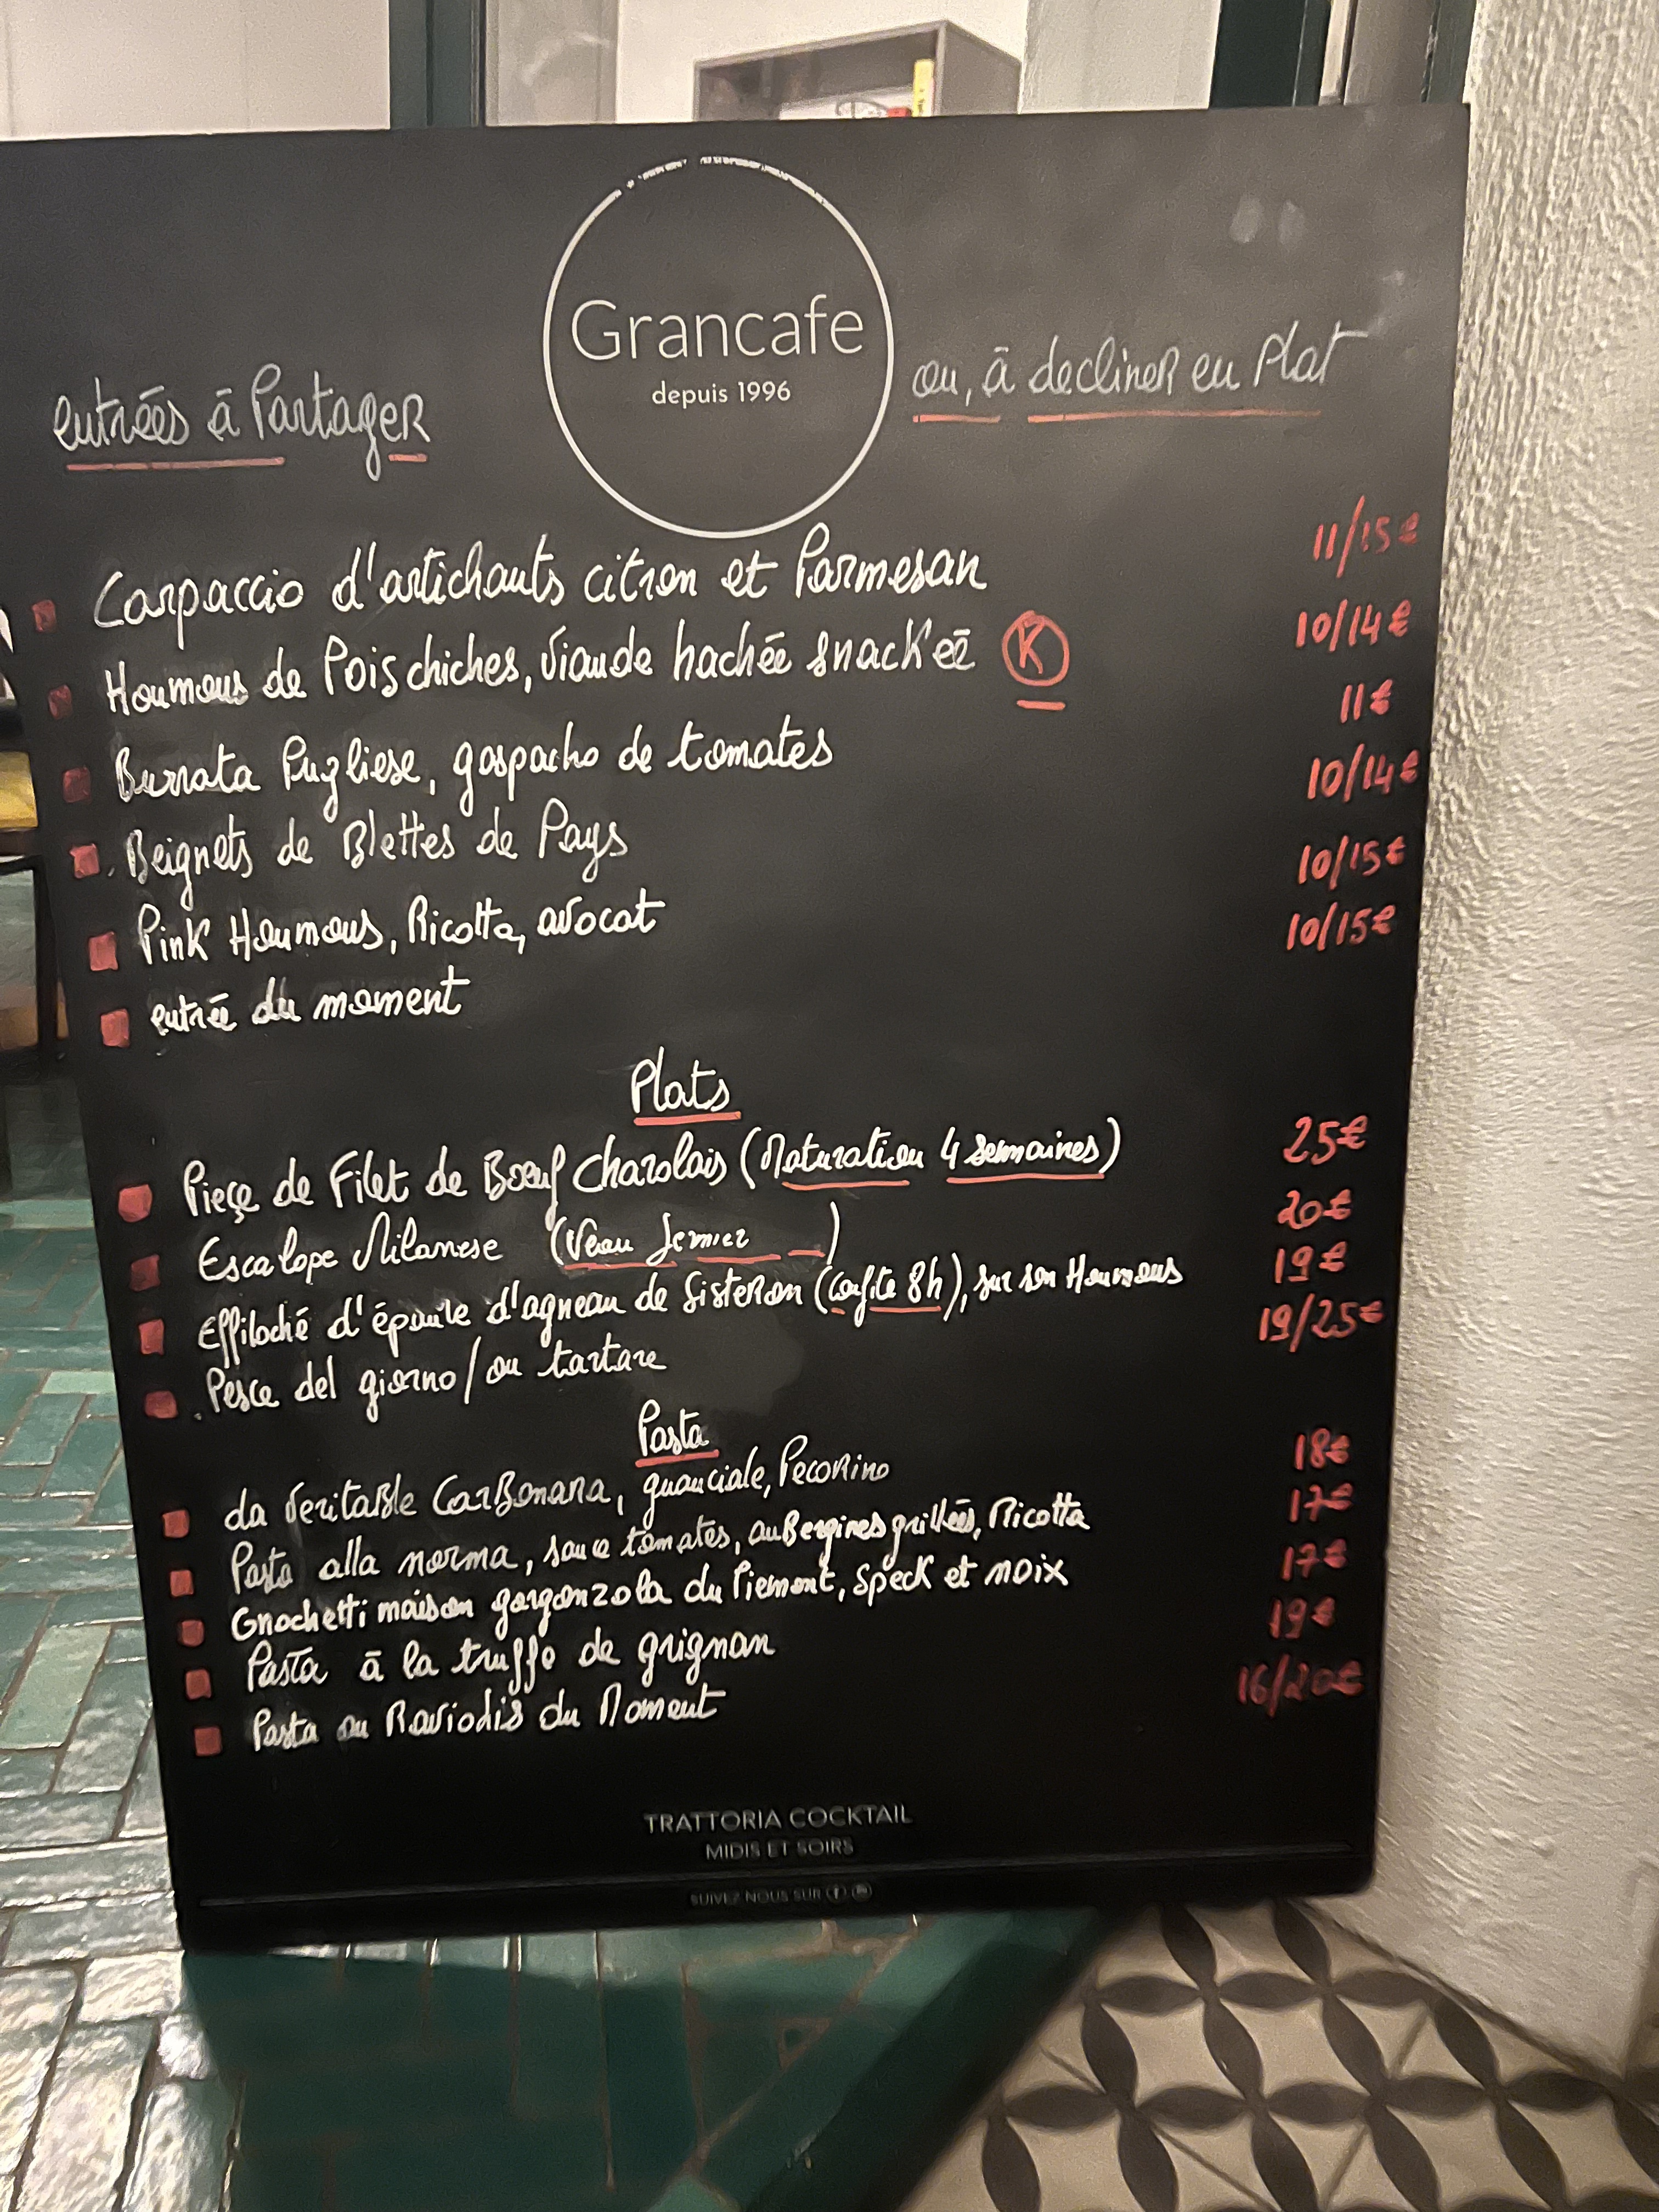 Grancafe
depuis 1996
entrées à Partager
ou, à decliner en Plat
Carpaccio d'artichauts citron et Parmesan 11/15€
Houmous de Pois chiches, viande hachée snackéé K 10/14€
Burrata Pugliese, gaspacho de tomates 11€
Beignets de Blettes de Pays 10/14€
Pink Houmous, Ricotta, avocat 10/15€
entrée du moment 10/15€
Plats
Pieçe de Filet de Bœuf Charolais (Maturation 4 semaines) 25€
Escalope Milanese (Veau fermier) 20€
Effiloché d'épaule d'agneau de Sisteron (confite 8h), sur son Houmous 19€
Pesce del giorno / ou tartare 19/25€
Pasta
La Veritable Carbonara, guanciale, Pecorino 18€
Pasta alla norma, sauce tomates, aubergines grillées, Ricotta 17€
Gnochetti maison gorgonzola du Piemont, Speck et noix 17€
Pasta à la truffe de grignan 19€
Pasta ou Raviolis du Moment 16/20€
TRATTORIA COCKTAIL
MIDIS ET SOIRS
SUIVEZ NOUS SUR